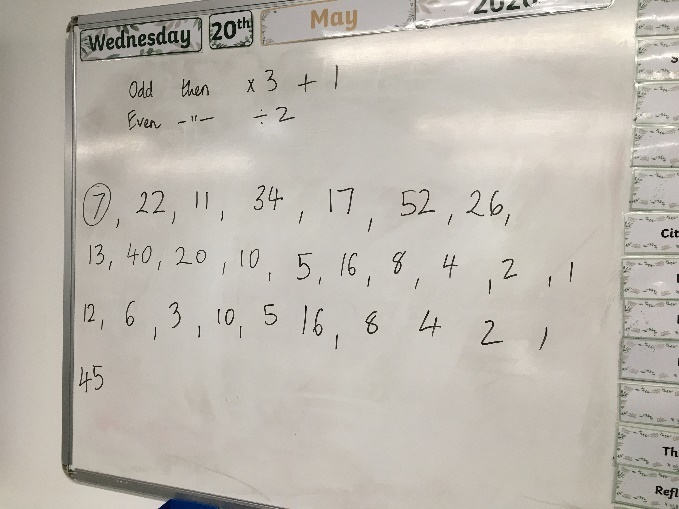 Wednesday 20th May
Odd then x 3 + 1
Even -"- ÷ 2
7, 22, 11, 34, 17, 52, 26,
13, 40, 20, 10, 5, 16, 8, 4, 2, 1
12, 6, 3, 10, 5 16, 8 4 2 1
45
Cit
Th
Refl